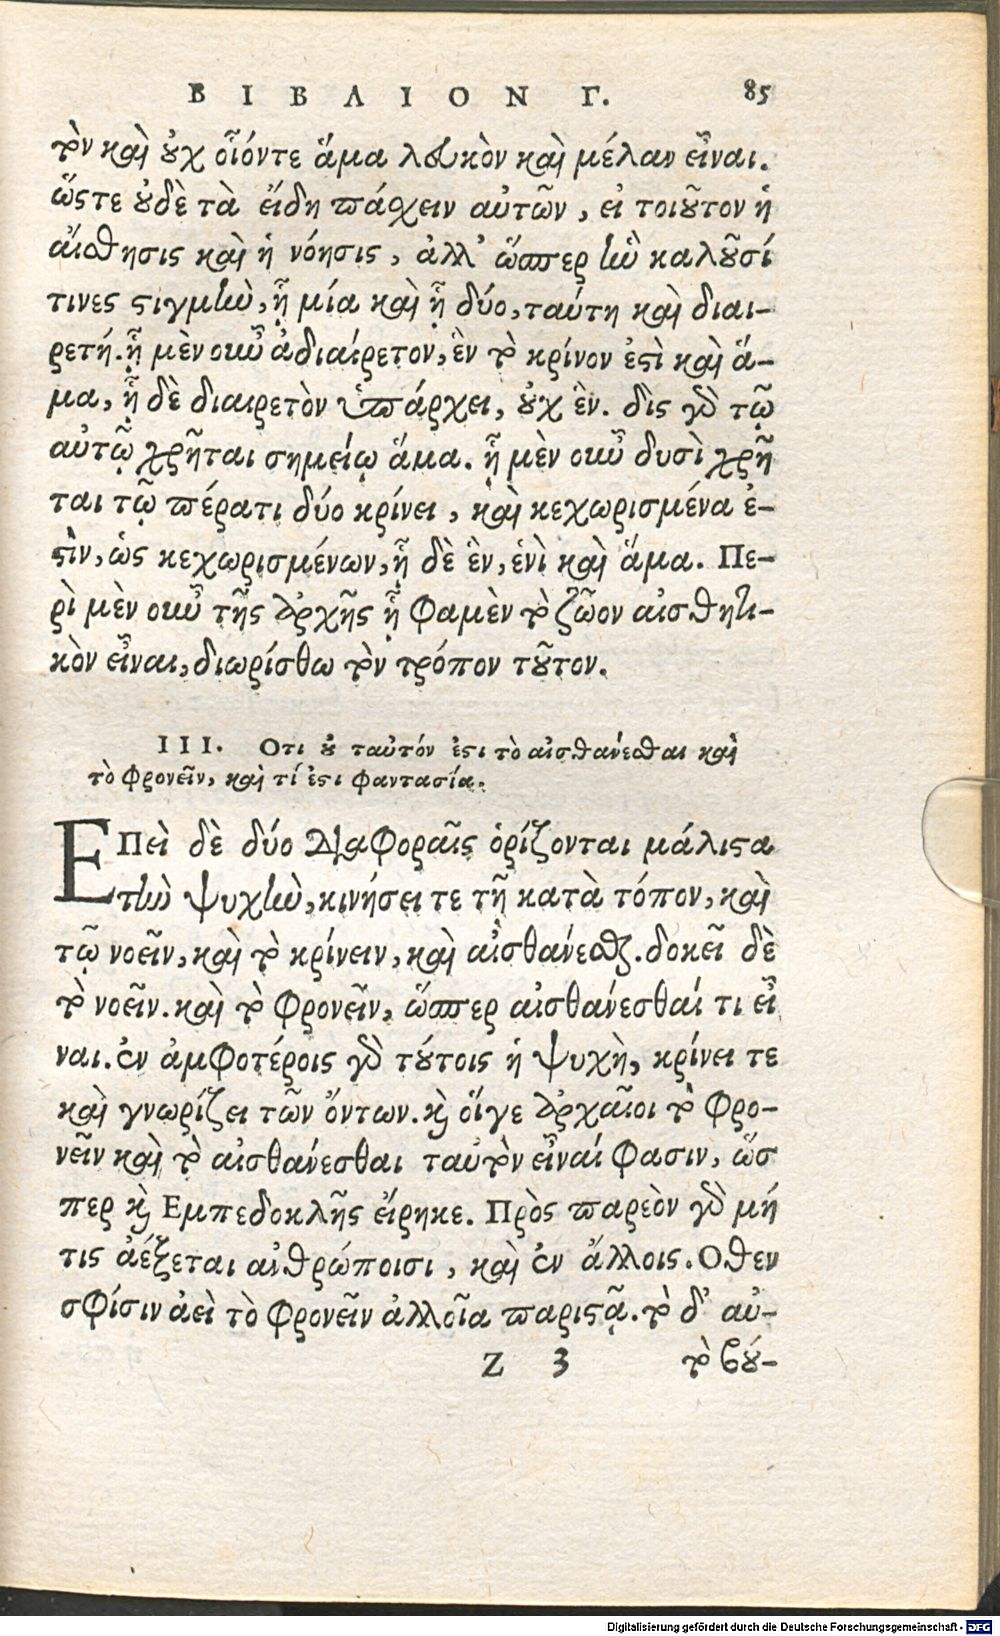 ΒΙΒΛΙΟΝ Γ. 85
τὸν καὶ οὐχ οἷόντε ἅμα λευκὸν καὶ μέλαν εἶναι.
ὥστε οὐδὲ τὰ εἴδη πάσχειν αὐτῶν, εἰ τοιοῦτον ἡ
αἴσθησις καὶ ἡ νόησις, ἀλλ’ ὥσπερ ἣν καλοῦσί
τινες στιγμὴν, ᾗ μία καὶ ᾗ δύο, ταύτη καὶ διαι-
ρετή. ᾗ μὲν οὖν ἀδιαίρετον, ἓν τὸ κρίνον ἐστὶ καὶ ἅ-
μα, ᾗ δὲ διαιρετὸν ὑπάρχει, οὐχ ἓν. δὶς γὰρ τῷ
αὐτῷ χρῆται σημείῳ ἅμα. ᾗ μὲν οὖν δυσὶ χρῆ
ται τῷ πέρατι δύο κρίνει, καὶ κεχωρισμένα ἐ-
στὶν, ὡς κεχωρισμένων, ᾗ δὲ ἓν, ἑνὶ καὶ ἅμα. Πε-
ρὶ μὲν οὖν τῆς ἀρχῆς ᾗ φαμὲν τὸ ζῶον αἰσθητι-
κὸν εἶναι, διωρίσθω τὸν τρόπον τοῦτον.
III. Οτι οὐ ταὐτόν ἐστι τὸ αἰσθάνεσθαι καὶ
τὸ φρονεῖν, καὶ τί ἐστι φαντασία.
ΕΠεὶ δὲ δύο διαφοραῖς ὁρίζονται μάλιστα
τὴν ψυχὴν, κινήσει τε τῇ κατὰ τόπον, καὶ
τῷ νοεῖν, καὶ τὸ κρίνειν, καὶ αἰσθάνεσθαι. δοκεῖ δὲ
τὸ νοεῖν. καὶ τὸ φρονεῖν, ὥσπερ αἰσθάνεσθαί τι εἶ
ναι. ἐν ἀμφοτέροις γὰρ τούτοις ἡ ψυχὴ, κρίνει τε
καὶ γνωρίζει τῶν ὄντων. καὶ οἵγε ἀρχαῖοι τὸ φρο-
νεῖν καὶ τὸ αἰσθάνεσθαι ταὐτὸν εἶναί φασιν, ὥσ
περ καὶ Εμπεδοκλῆς εἴρηκε. Πρὸς παρεὸν γὰρ μή
τις ἀέξεται ἀνθρώποισι, καὶ ἐν ἄλλοις. Οθεν
σφίσιν ἀεὶ τὸ φρονεῖν ἀλλοῖα παριστᾷ. τὸ δ’ αὐ-
Z 3 τὸ βού-
Digitalisierung gefördert durch die Deutsche Forschungsgemeinschaft - DFG